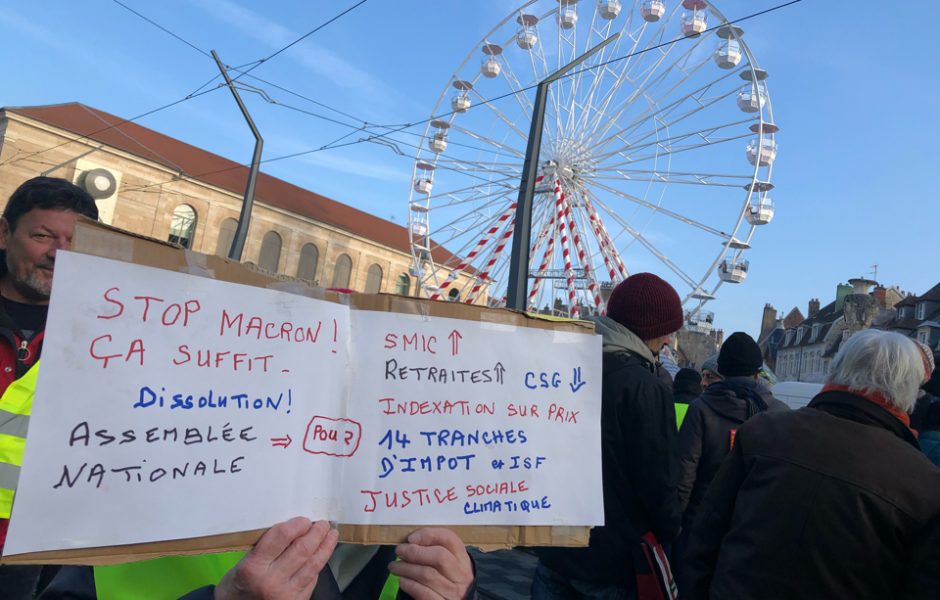 STOP MACRON !
ÇA SUFFIT.
DISSOLUTION!
ASSEMBLÉE
NATIONALE
⇒
POUR
SMIC ↑
RETRAITES ⇑ CSG ⇓
INDEXATION SUR PRIX
14 TRANCHES
D'IMPOT et ISF
JUSTICE SOCIALE
CLIMATIQUE